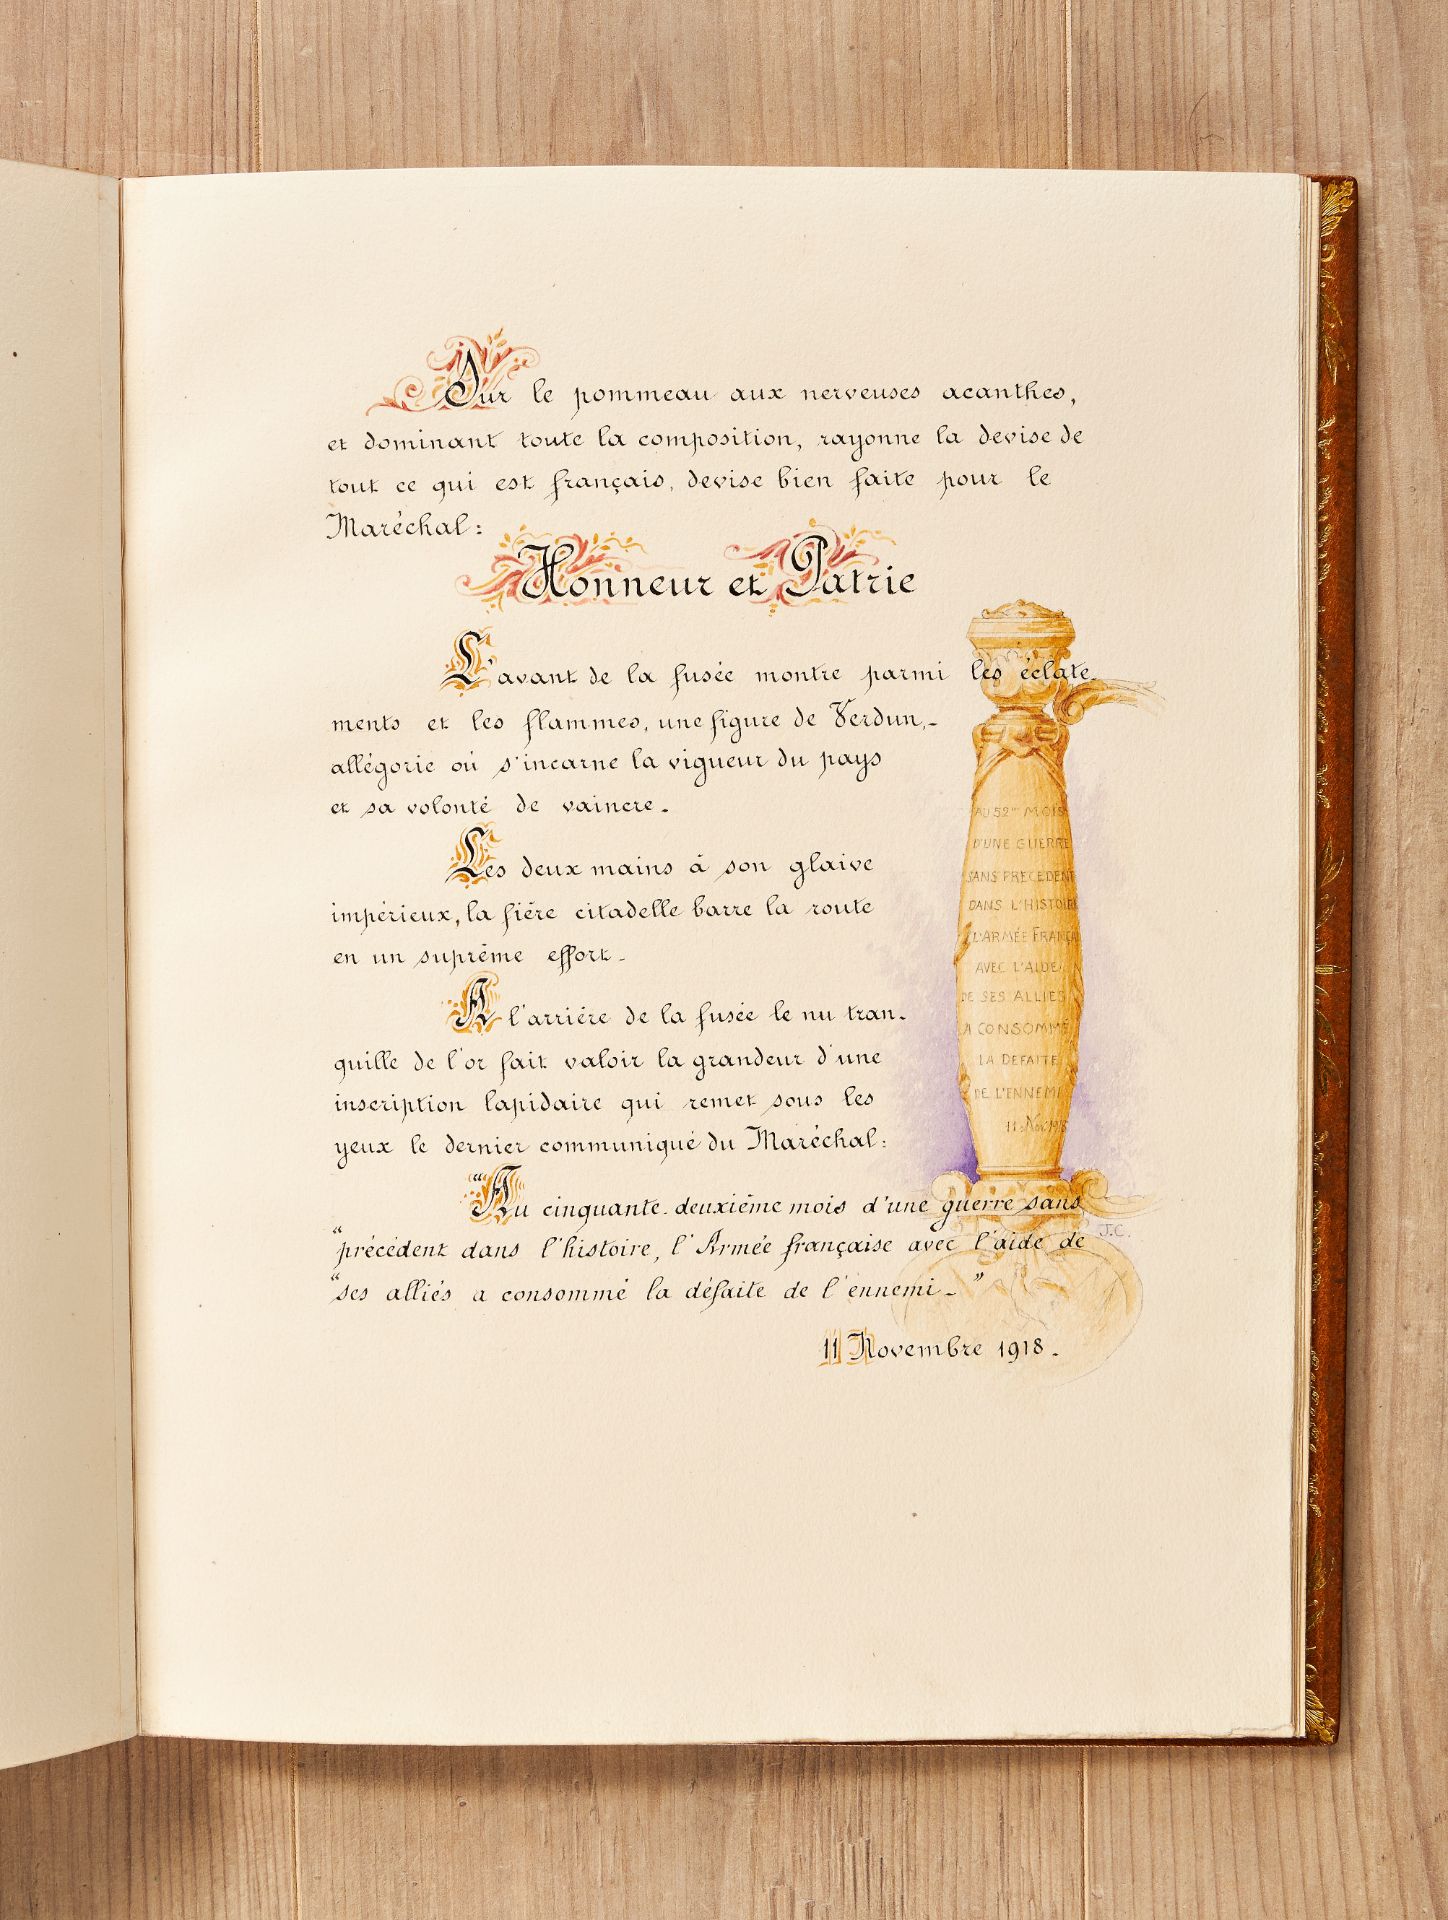 Sur le pommeau aux nerveuses acanthes,
et dominant toute la composition, rayonne la devise de
tout ce qui est français, devise bien faite pour le
Maréchal :
Honneur et Patrie
L'avant de la fusée montre parmi les éclate-
ments et les flammes, une figure de Verdun,-
allégorie où s'incarne la vigueur du pays
et sa volonté de vaincre.
Les deux mains à son glaive
impérieux, la fière citadelle barre la route
en un suprême effort.
A l'arrière de la fusée le nu tran-
quille de l'or fait valoir la grandeur d'une
inscription lapidaire qui remet sous les
yeux le dernier communiqué du Maréchal :
"Au cinquante-deuxième mois d'une guerre sans
"précédent dans l'histoire, l'Armée française avec l'aide de
"ses alliés a consommé la défaite de l'ennemi. "
11 Novembre 1918.
AU 52me MOIS
D'UNE GUERRE
SANS PRECEDENT
DANS L'HISTOIRE
L'ARMÉE FRANCA
AVEC L'AIDE
DE SES ALLIES
A CONSOMMÉ
LA DEFAITE
DE L'ENNEMI
11 Nov 1918
J.C.